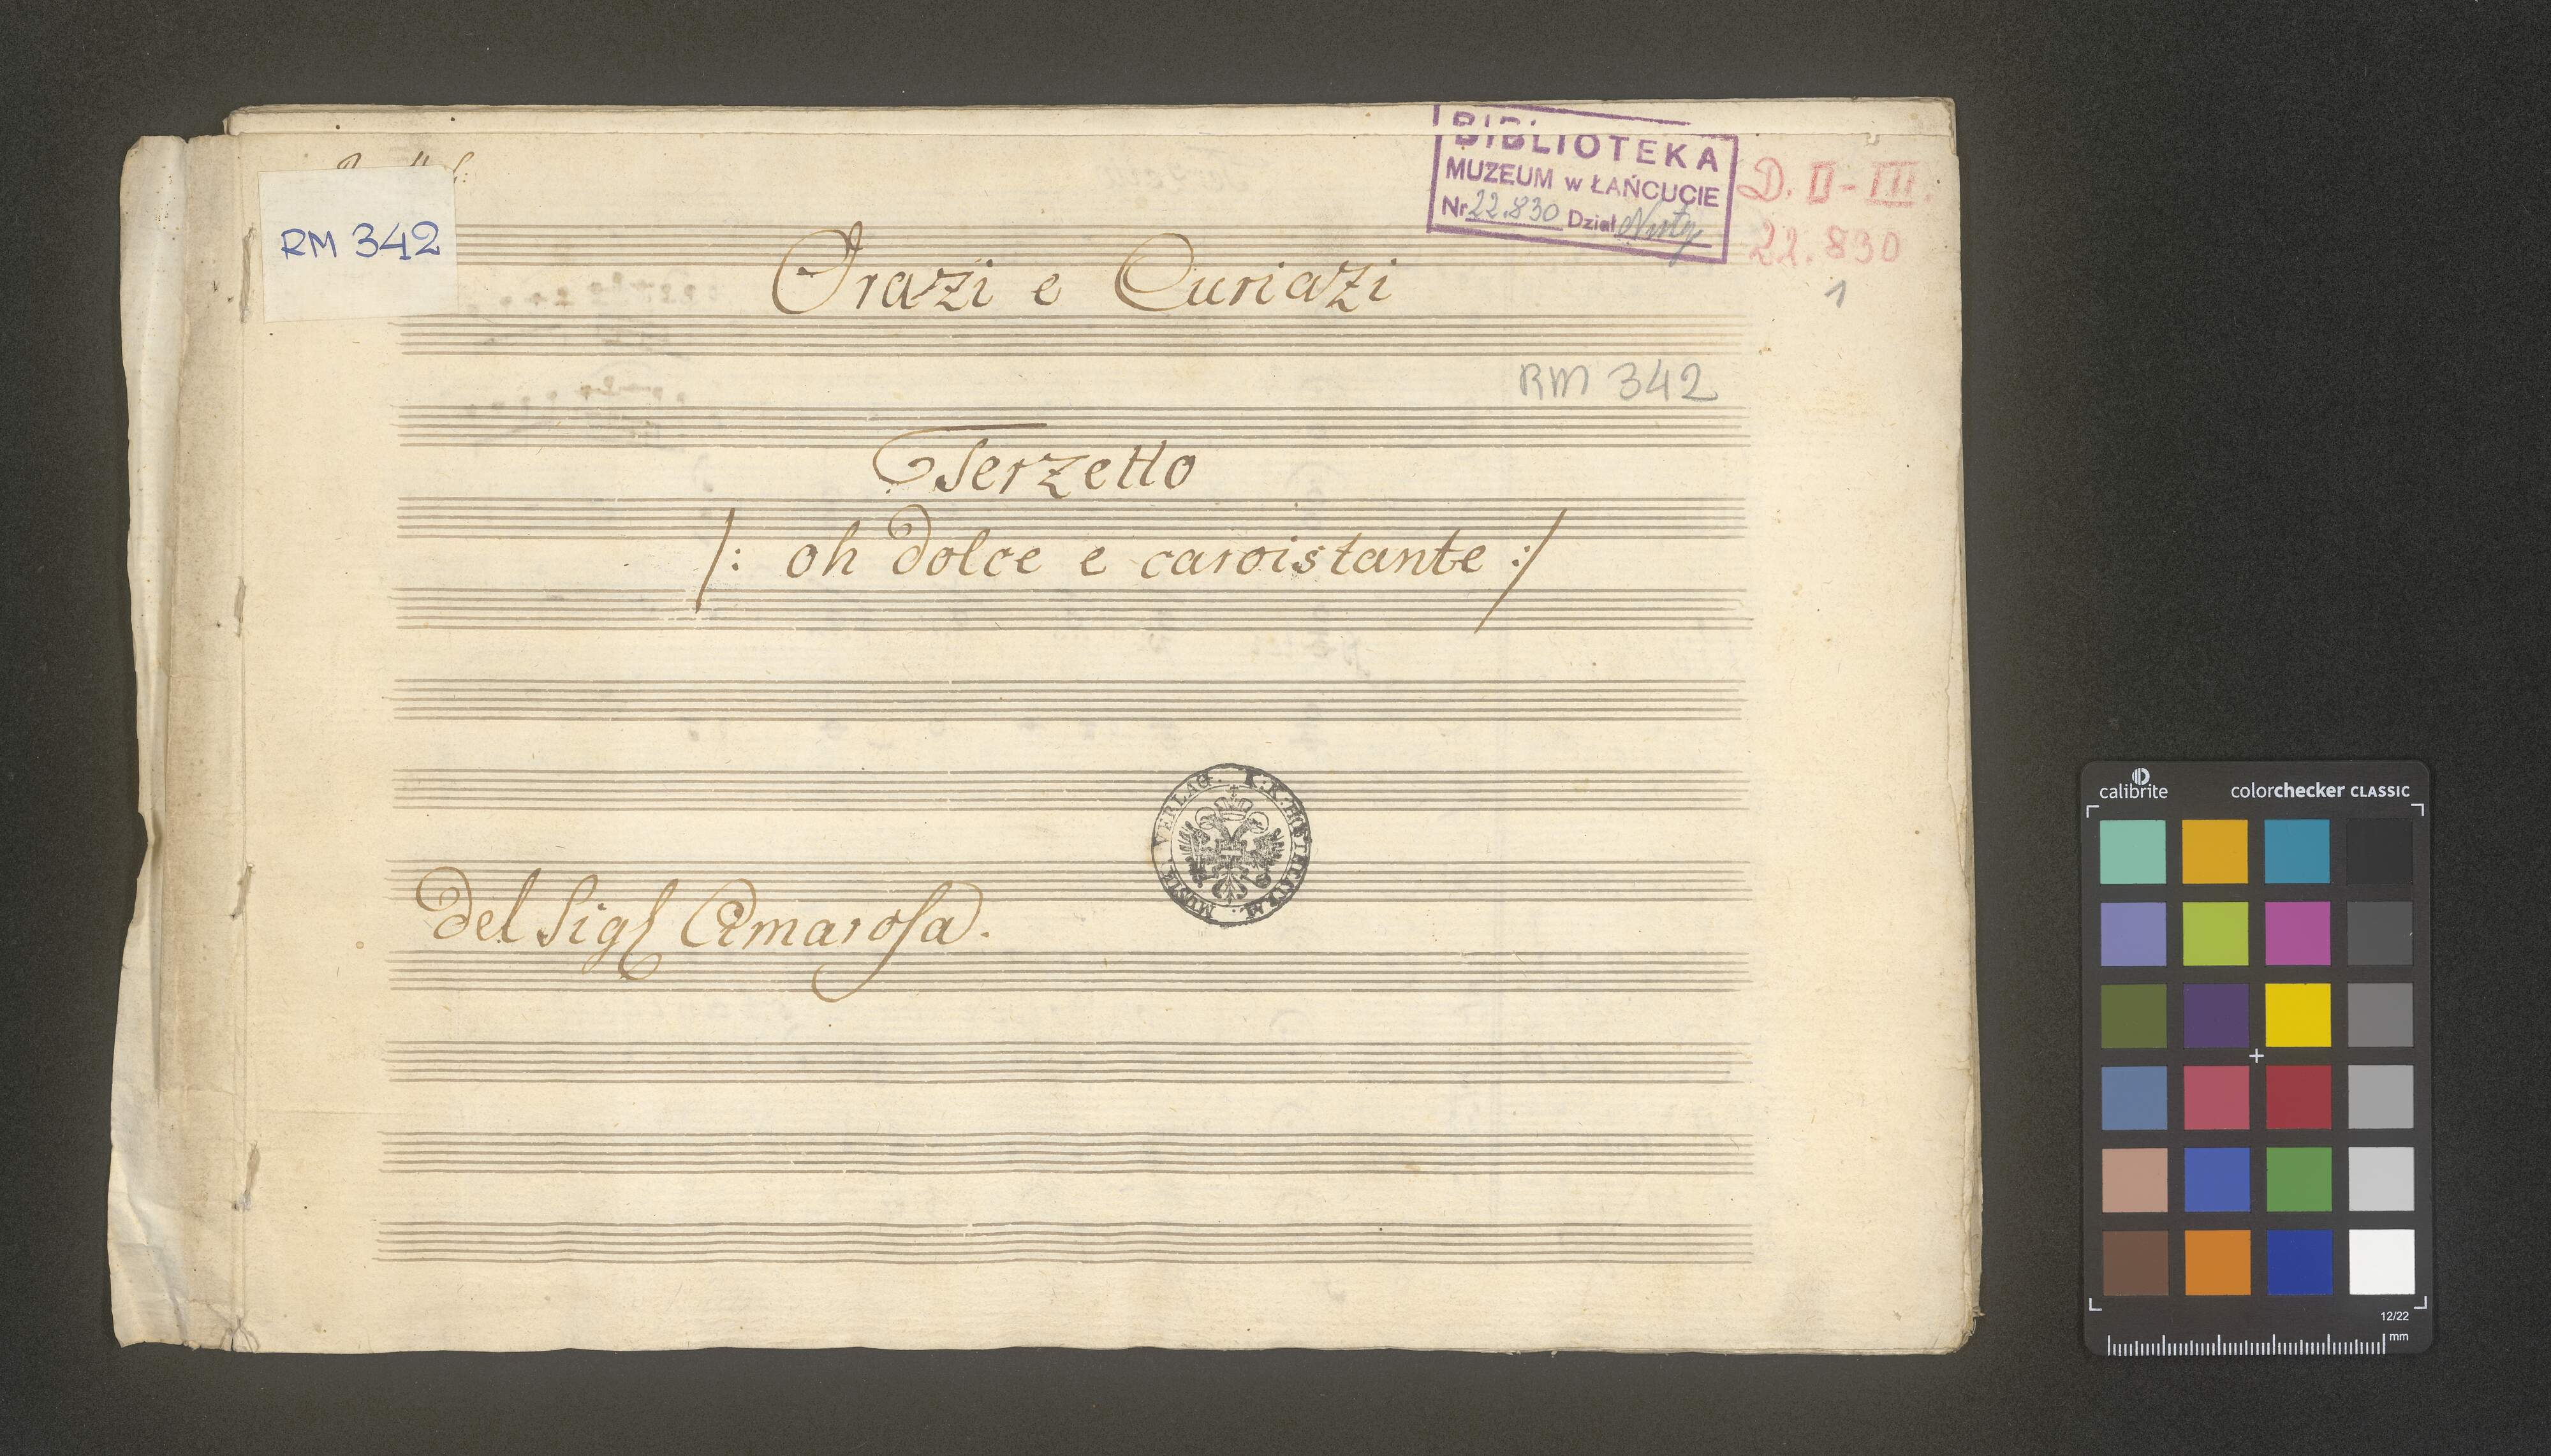 RM 342
BIBLIOTEKA
MUZEUM w ŁAŃCUCIE
Nr 22.830 Dział Nuty
D. II-III.
22.830
1
Orazi e Curiazi
RM 342
Terzetto
/: oh dolce e caroistante :/
MUSIK VERLAG. K:K:HOFTHEATR.
del Sigl Cimarosa.
calibrite
colorchecker CLASSIC
12/22
mm